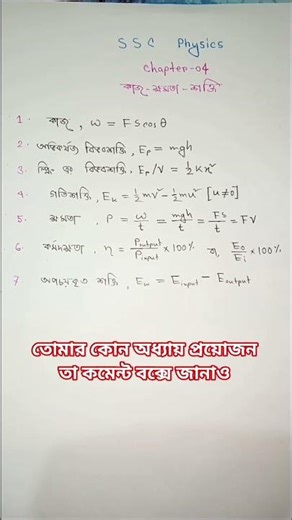 SSC Physics
Chapter-04
কাজ-ক্ষমতা-শক্তি
1. কাজ, W = FS cosθ
2. অভিকর্ষজ বিভবশক্তি, Eₚ = mgh
3. স্প্রিং এর বিভবশক্তি, Eₚ/V = ½Kx²
4. গতিশক্তি, Eₖ = ½mv² − ½mu² [u≠0]
5. ক্ষমতা, P = W/t = mgh/t = FS/t = FV
6. কর্মদক্ষতা, η = Poutput/Pinput × 100% বা, E₀/Eᵢ × 100%
7. অপচয়কৃত শক্তি, Eω = Einput − Eoutput
তোমার কোন অধ্যায় প্রয়োজন
তা কমেন্ট বক্সে জানাও